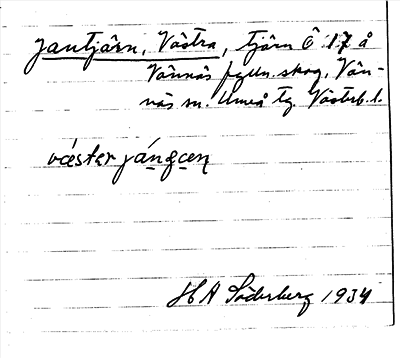 Jantjärn, Västra, tjärn Ö 17 å
Vännäs fylln. skog, Vän-
näs sn. Umeå tg. Västerb. l.
väster
H A Söderberg 1934